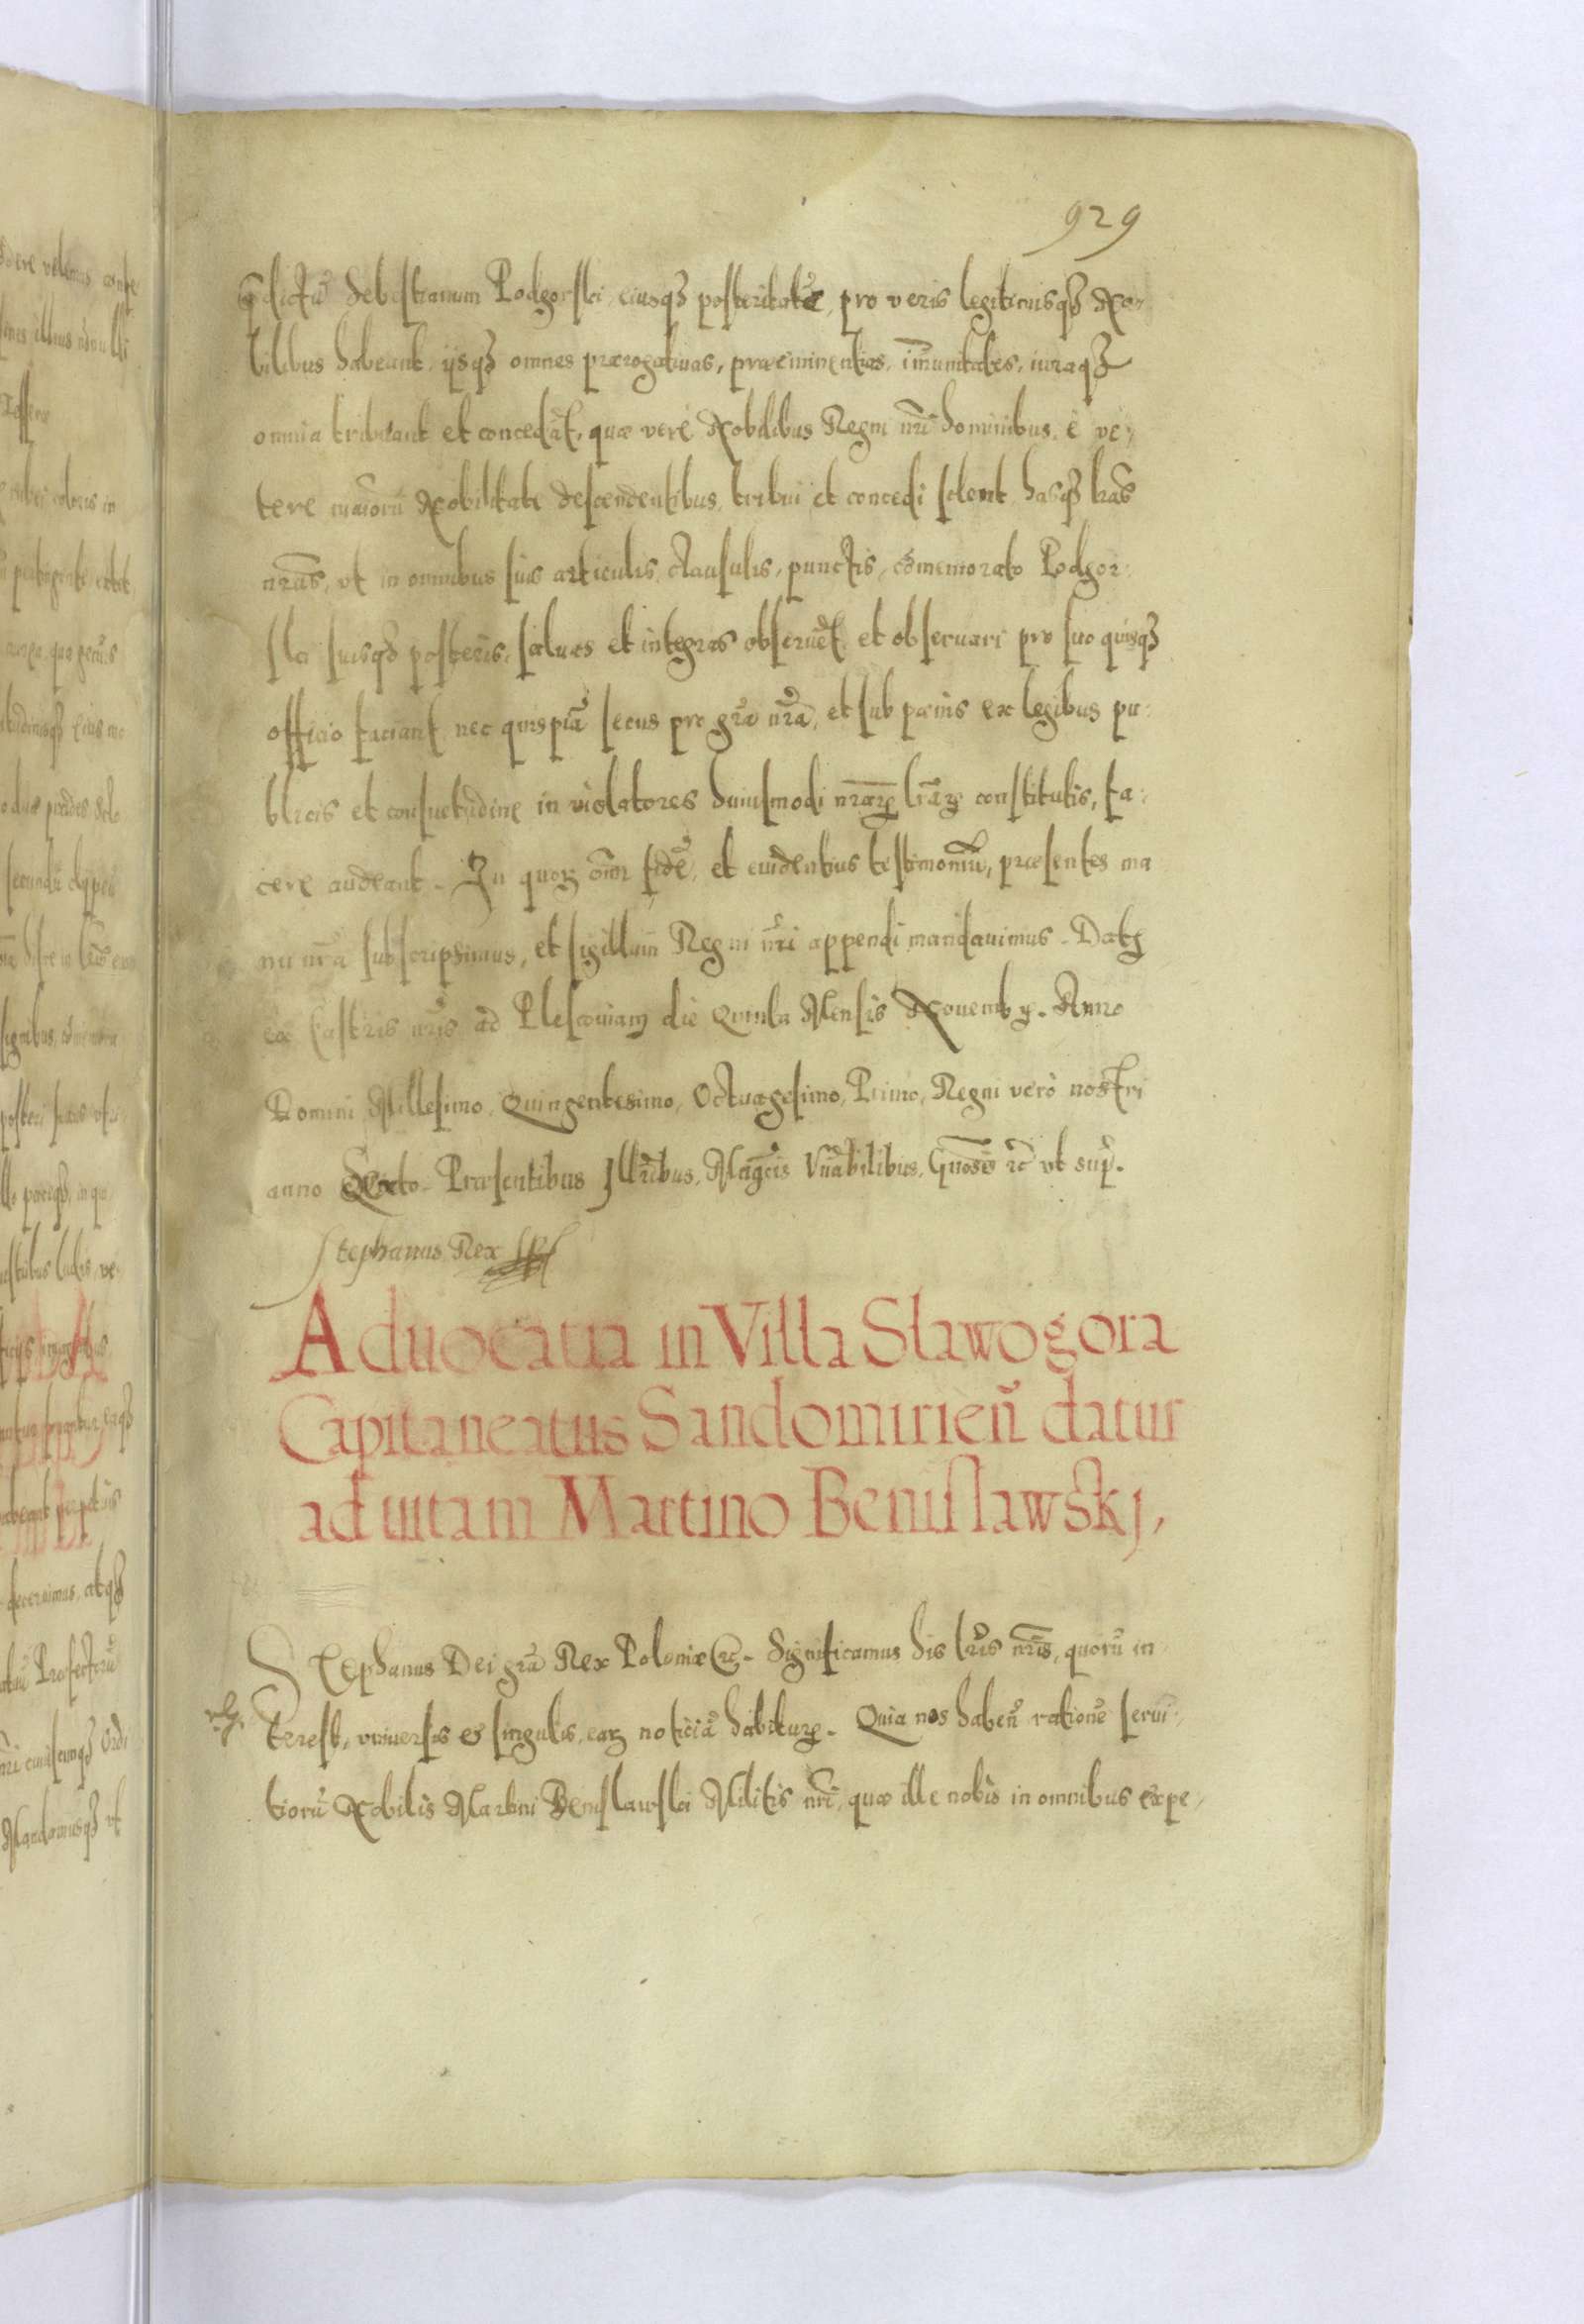 929
p̃dictũ Sebastianum Podgorski eiusqȝ posteritatẽ, pro veris legitimisqȝ No-
bilibus habeant, ijsqȝ omnes prærogatiuas, præeminentias, im̃unitates, iuraqȝ
omnia tribuant et concedãt, quæ verè Nobilibus Regni nr̃i hominibus, è ve-
tere maiorũ Nobilitate descendentibus, tribui et concedi solent, hasqȝ lr̃as
nr̃as, vt in omnibus suis articulis, clausulis, punctis, com̃emorato Podgor-
ski suisqȝ posteris, saluas et integras obseruẽt, et obseruari pro suo quisqȝ
officio faciant, nec quispiã secus pro gr̃a nr̃a, et sub pœnis ex legibus pu-
blicis et consuetudine in violatores huiusmodi nr̃arꝝ lr̃arꝝ constitutis, fa-
cere audeant. In quorꝝ om̃ fidẽ, et euidentius testimoniũ, præsentes ma
nu nr̃a subscripsimus, et sigillum Regni nr̃i appendi mandauimus. Datꝝ
ex castris nr̃is ad Plescouiam die Quinta Mensis Nouembꝝ. Anno
Domini Millesimo, Quingentesimo, Octuagesimo, Primo, Regni verò nostri
anno Sexto. Præsentibus Illr̃ibus, Magc̃is Vñabilibus, Gñosis ꝛc̃ vt sup̃.
Stephanus Rex sst
Aduocatia in Villa Sławogora
Capitaneatus Sandomirieñ datur
ad uitam Martino Benisławskj,
Stephanus Dei gr̃a Rex Poloniæ ꝛc̃. Significamus his lr̃is nr̃is, quorũ in
terest, vniuersis et singulis, earꝝ noticiã habiturꝝ. Quia nos habeñ rationẽ serui-
tiorũ Nobilis Martini Benislawski Militis nr̃i, quæ ille nobis in omnibus expe-